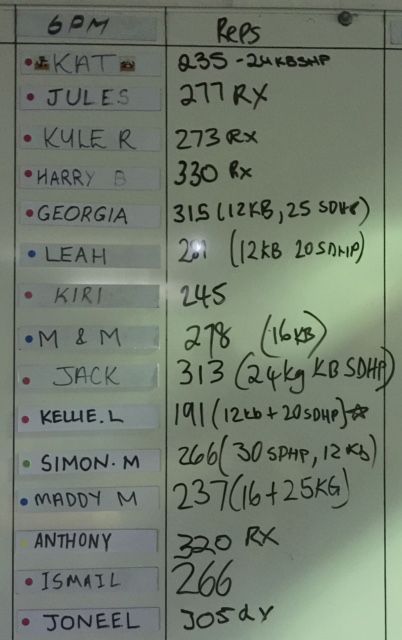 6PM Reps
KAT 235 - 24KBSHP
JULES 277 RX
KYLE R 273 RX
HARRY B 330 Rx
GEORGIA 315 (12KB, 25 SDHP)
LEAH (12KB 20SDHP)
KIRI 245
M & M 278 (16KB)
JACK 313 (24kg KB SDHP)
KELLIE.L 191 (12kb + 20SDHP)
SIMON.M 266 (30 SPHP, 12KB)
MADDY M 237 (16+25KG)
ANTHONY 320 RX
ISMAIL 266
JONEEL 305